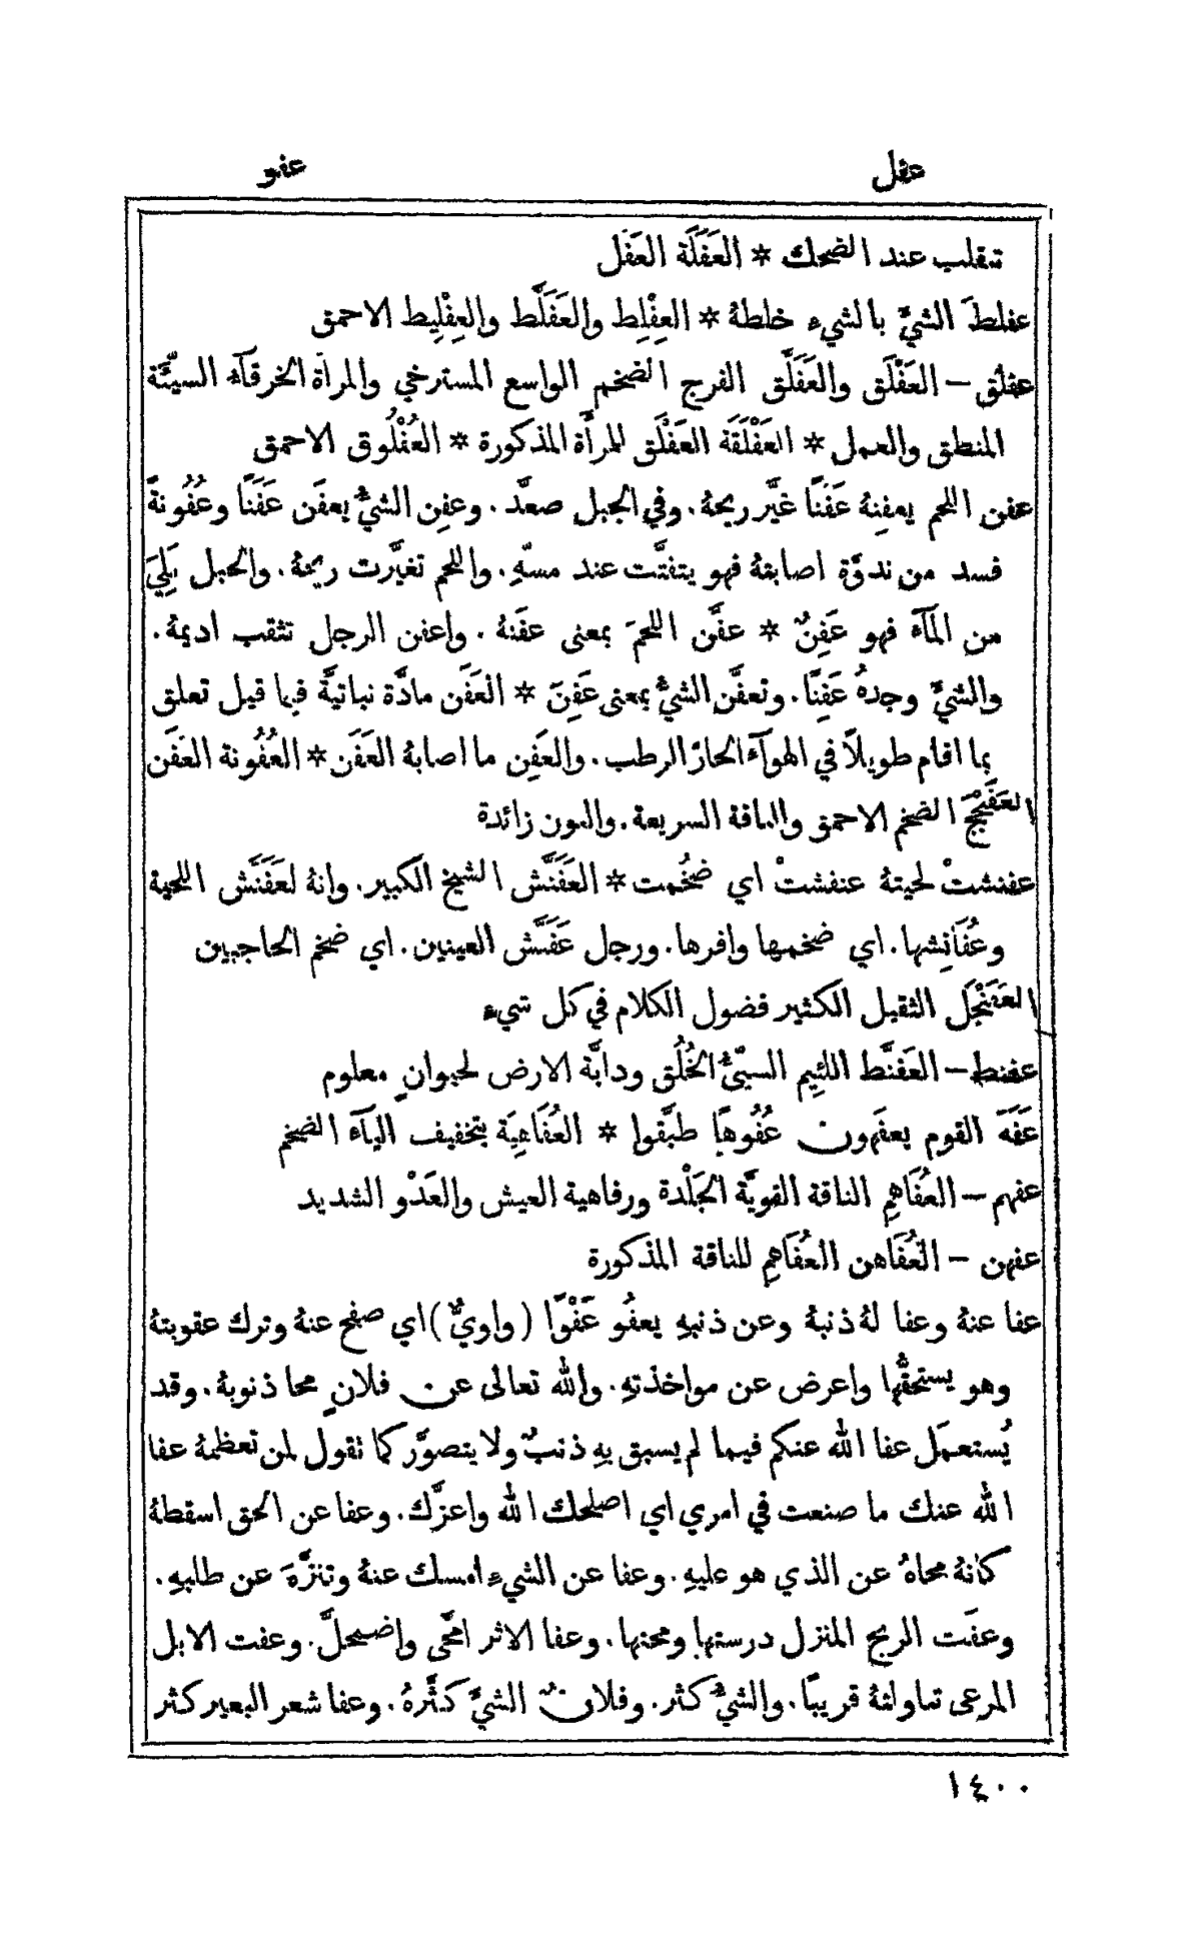 عفل
عفو
تنقلب عند الضحك * العَفَلَة العَفَل
عفلطَ الشيَّ بالشيء خلطهُ * العِفْلِط والعَفَلَّط والعِفْلِيط الاحمق
عفلق – العَفْلَق والعَفَلَّق الفرج الضخم الواسع المسترخي والمرأة الخرقآء السيّئة
المنطق والعمل * العَفْلَقَة العَفْلَق للمرأة المذكورة * العُفْلُوق الاحمق
عفن اللحم يعفِنهُ عَفْنًا غيَّر ريحهُ. وفي الجبل صعَّد. وعفِن الشيُّ يعفَن عَفَنًا وعُفُونةً
فسد من ندوَّة اصابتهُ فهو يتفتَّت عند مسّهِ. واللحم تغيَّرت ريحهُ. والحبل بَلِيَ
من المآء فهو عَفِنٌ * عفَّن اللحمَ بمعنى عفَنهُ. واعفن الرجل تثقب اديمهُ.
والشيَّ وجدهُ عَفِنًا. وتعفَّن الشيُّ بمعنى عَفِنَ * العَفَن مادَّة نباتيَّة فيما قيل تعلق
بما اقام طويلًا في الهوآء الحارّ الرطب. والعَفِن ما اصابهُ العَفَن * العُفُونة العَفَن
العَفَنْجَج الضخم الاحمق والناقة السريعة. والنون زائدة
عفنشتْ لحيتهُ عنفشتْ اي ضخُمت * العَفَنَّش الشيخ الكبير. وانهُ لعَفَنَّش اللحية
وعُفَانِشها. اي ضخمها وافرها. ورجل عَفَنَّش العينين. اي ضخم الحاجبين
العَفَنْجَل الثقيل الكثير فضول الكلام في كل شيء
عفنط – العَفَنَّط اللئيم السيّئُ الخُلُق ودابَّة الارض لحيوانٍ معلوم
عَفَهَ القوم يعفَهون عُفُوهًا طبَّقوا * العُفَاهِيَة بتخفيف اليآء الضخم
عفهم – العُفَاهِم الناقة القويَّة الجَلْدة ورفاهية العيش والعَدْو الشديد
عفهن – العُفَاهن العُفَاهِم للناقة المذكورة
عفا عنهُ وعفا لهُ ذنبهُ وعن ذنبهِ يعفُو عَفْوًا (واويٌّ) اي صفح عنهُ وترك عقوبتهُ
وهو يستحقُّها واعرض عن مواخذتهِ. والله تعالى عن فلانٍ محا ذنوبهُ. وقد
يُستعمَل عفا الله عنكم فيما لم يسبق بهِ ذنبٌ ولا يتصوَّر كما تقول لمن تعظمهُ عفا
الله عنك ما صنعت في امري اي اصلحك الله واعزَّك. وعفا عن الحق اسقطهُ
كانهُ محاهُ عن الذي هو عليهِ. وعفا عن الشيءِ امسك عنهُ وتنزَّهَ عن طلبهِ.
وعفَت الريح المنزل درستها ومحتها. وعفا الاثر امَّحى واضمحلَّ. وعفت الابل
المرعى تناولتهُ قريبًا. والشيُّ كثر. وفلانٌ الشيَّ كثَّرهُ. وعفا شعر البعير كثر
١٤٠٠